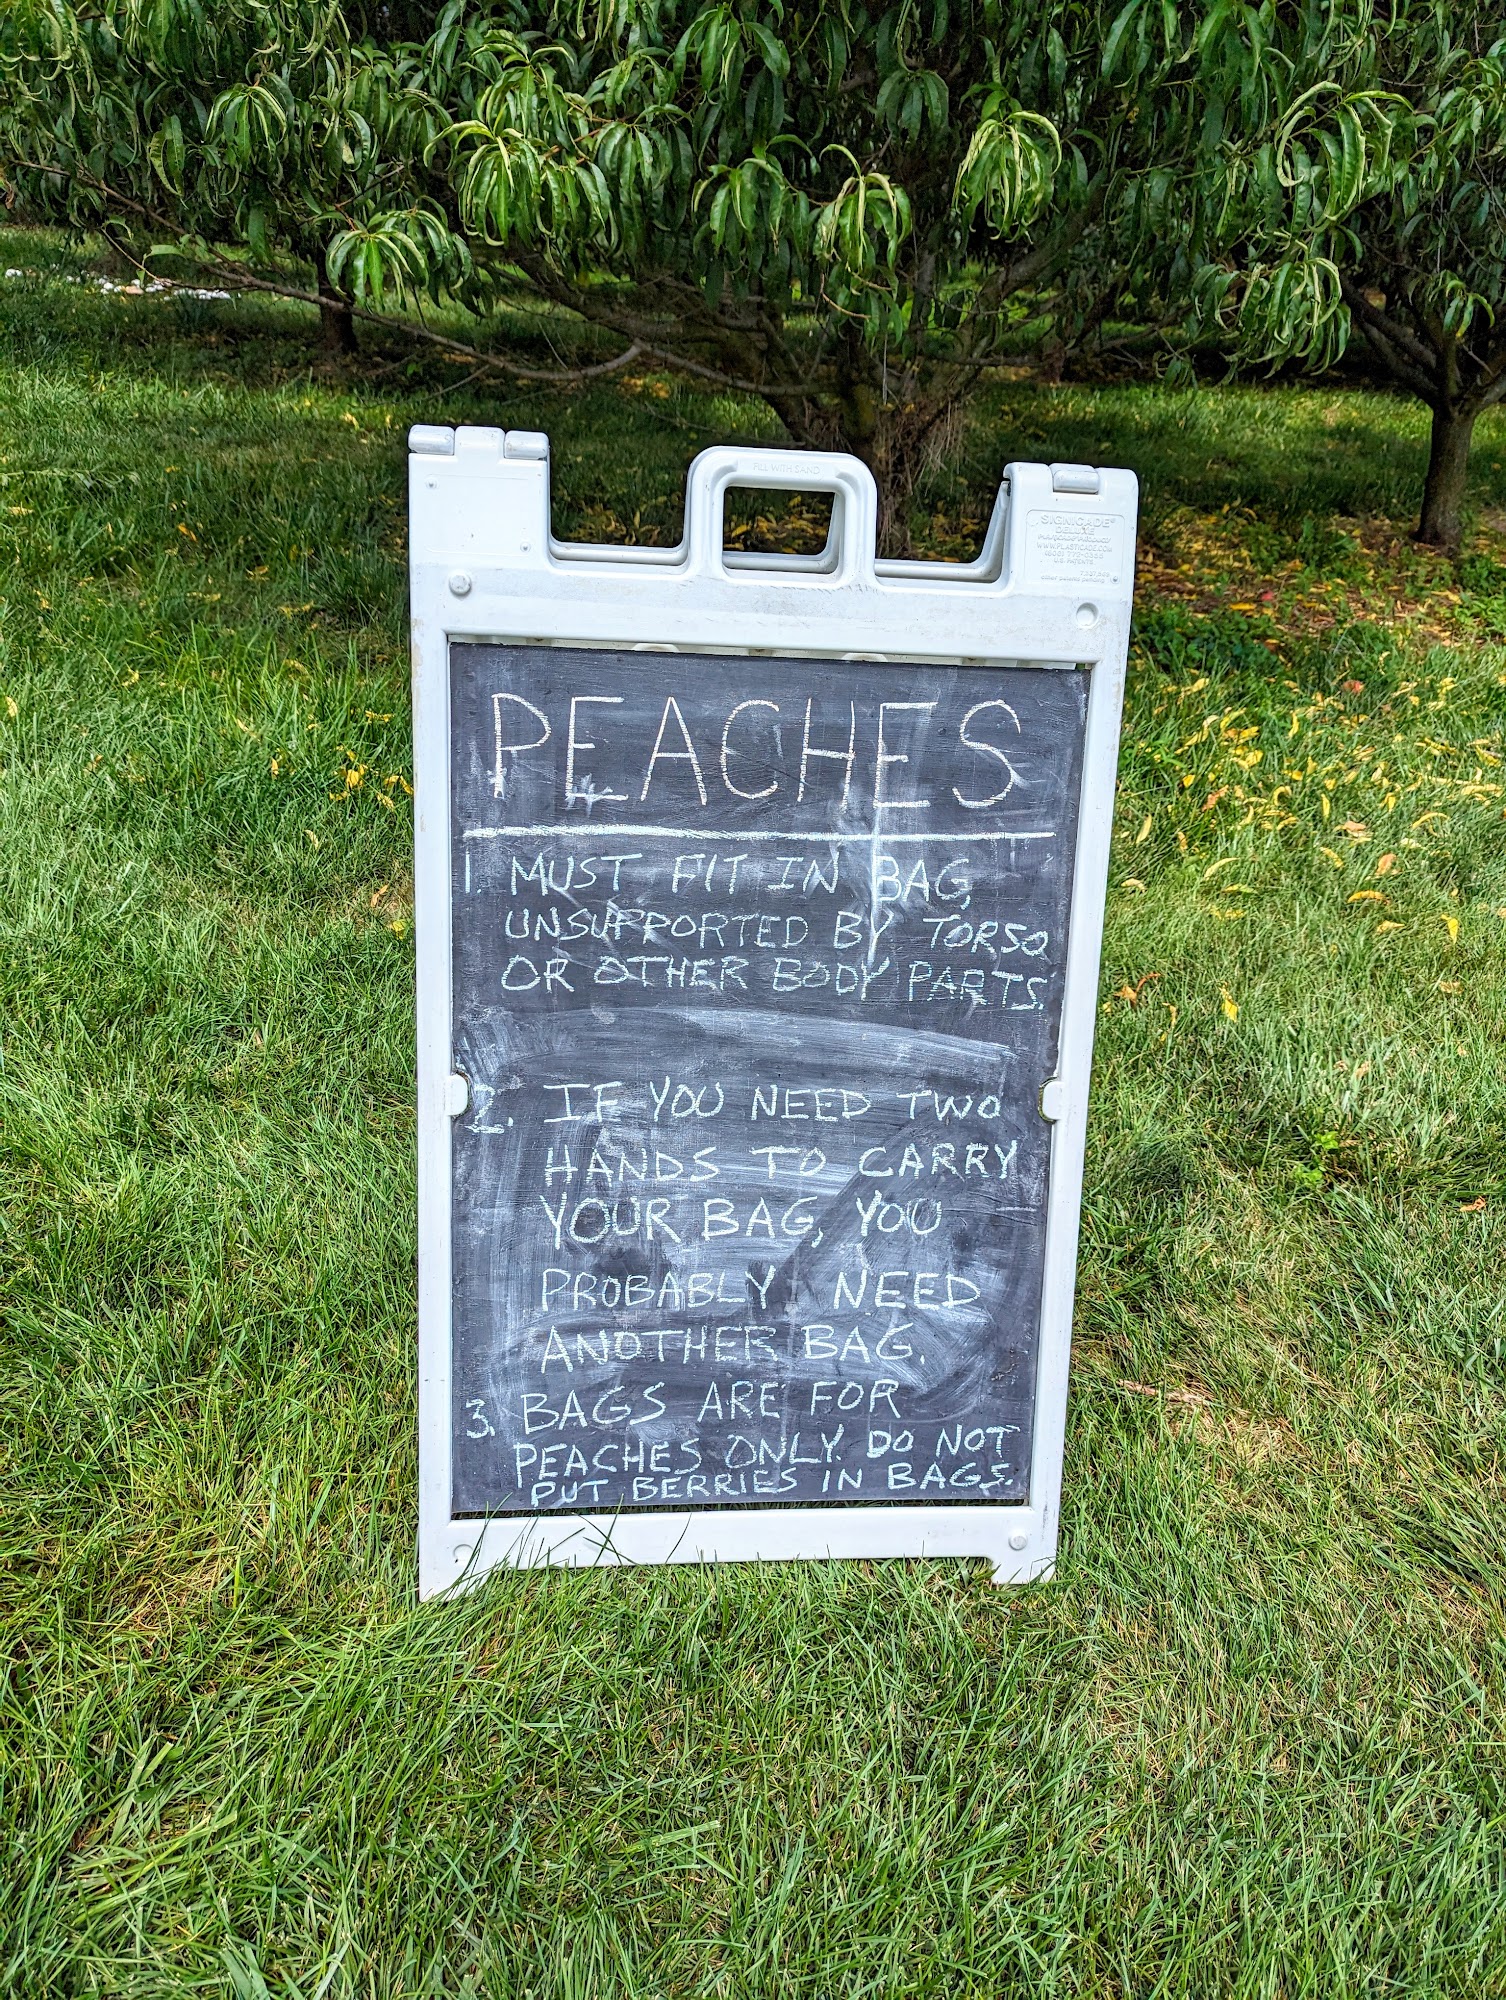 FILL WITH SAND
SIGNICADE®
DELUXE
WWW.PLASTICADE.COM
U.S. PATENTS
PEACHES
1. MUST FIT IN BAG,
UNSUPPORTED BY TORSO
OR OTHER BODY PARTS.
2. IF YOU NEED TWO
HANDS TO CARRY
YOUR BAG, YOU
PROBABLY NEED
ANOTHER BAG.
3. BAGS ARE FOR
PEACHES ONLY. DO NOT
PUT BERRIES IN BAGS.